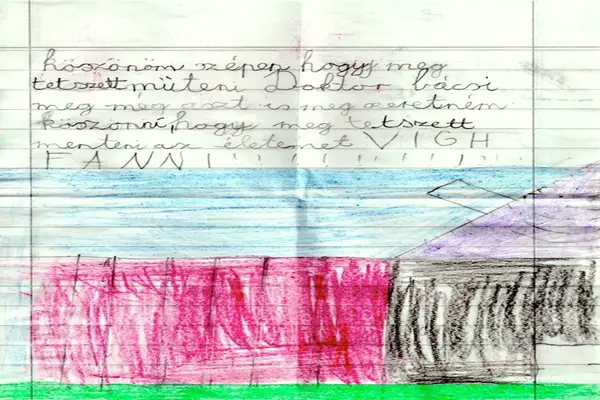 köszönöm szépen hogy meg
tetszett műteni Doktor bácsi
meg meg aszt is meg szeretném
köszönni, hogy meg tetszett
menteni az életemet VIGH
FANNI!!!!!!!!!!!